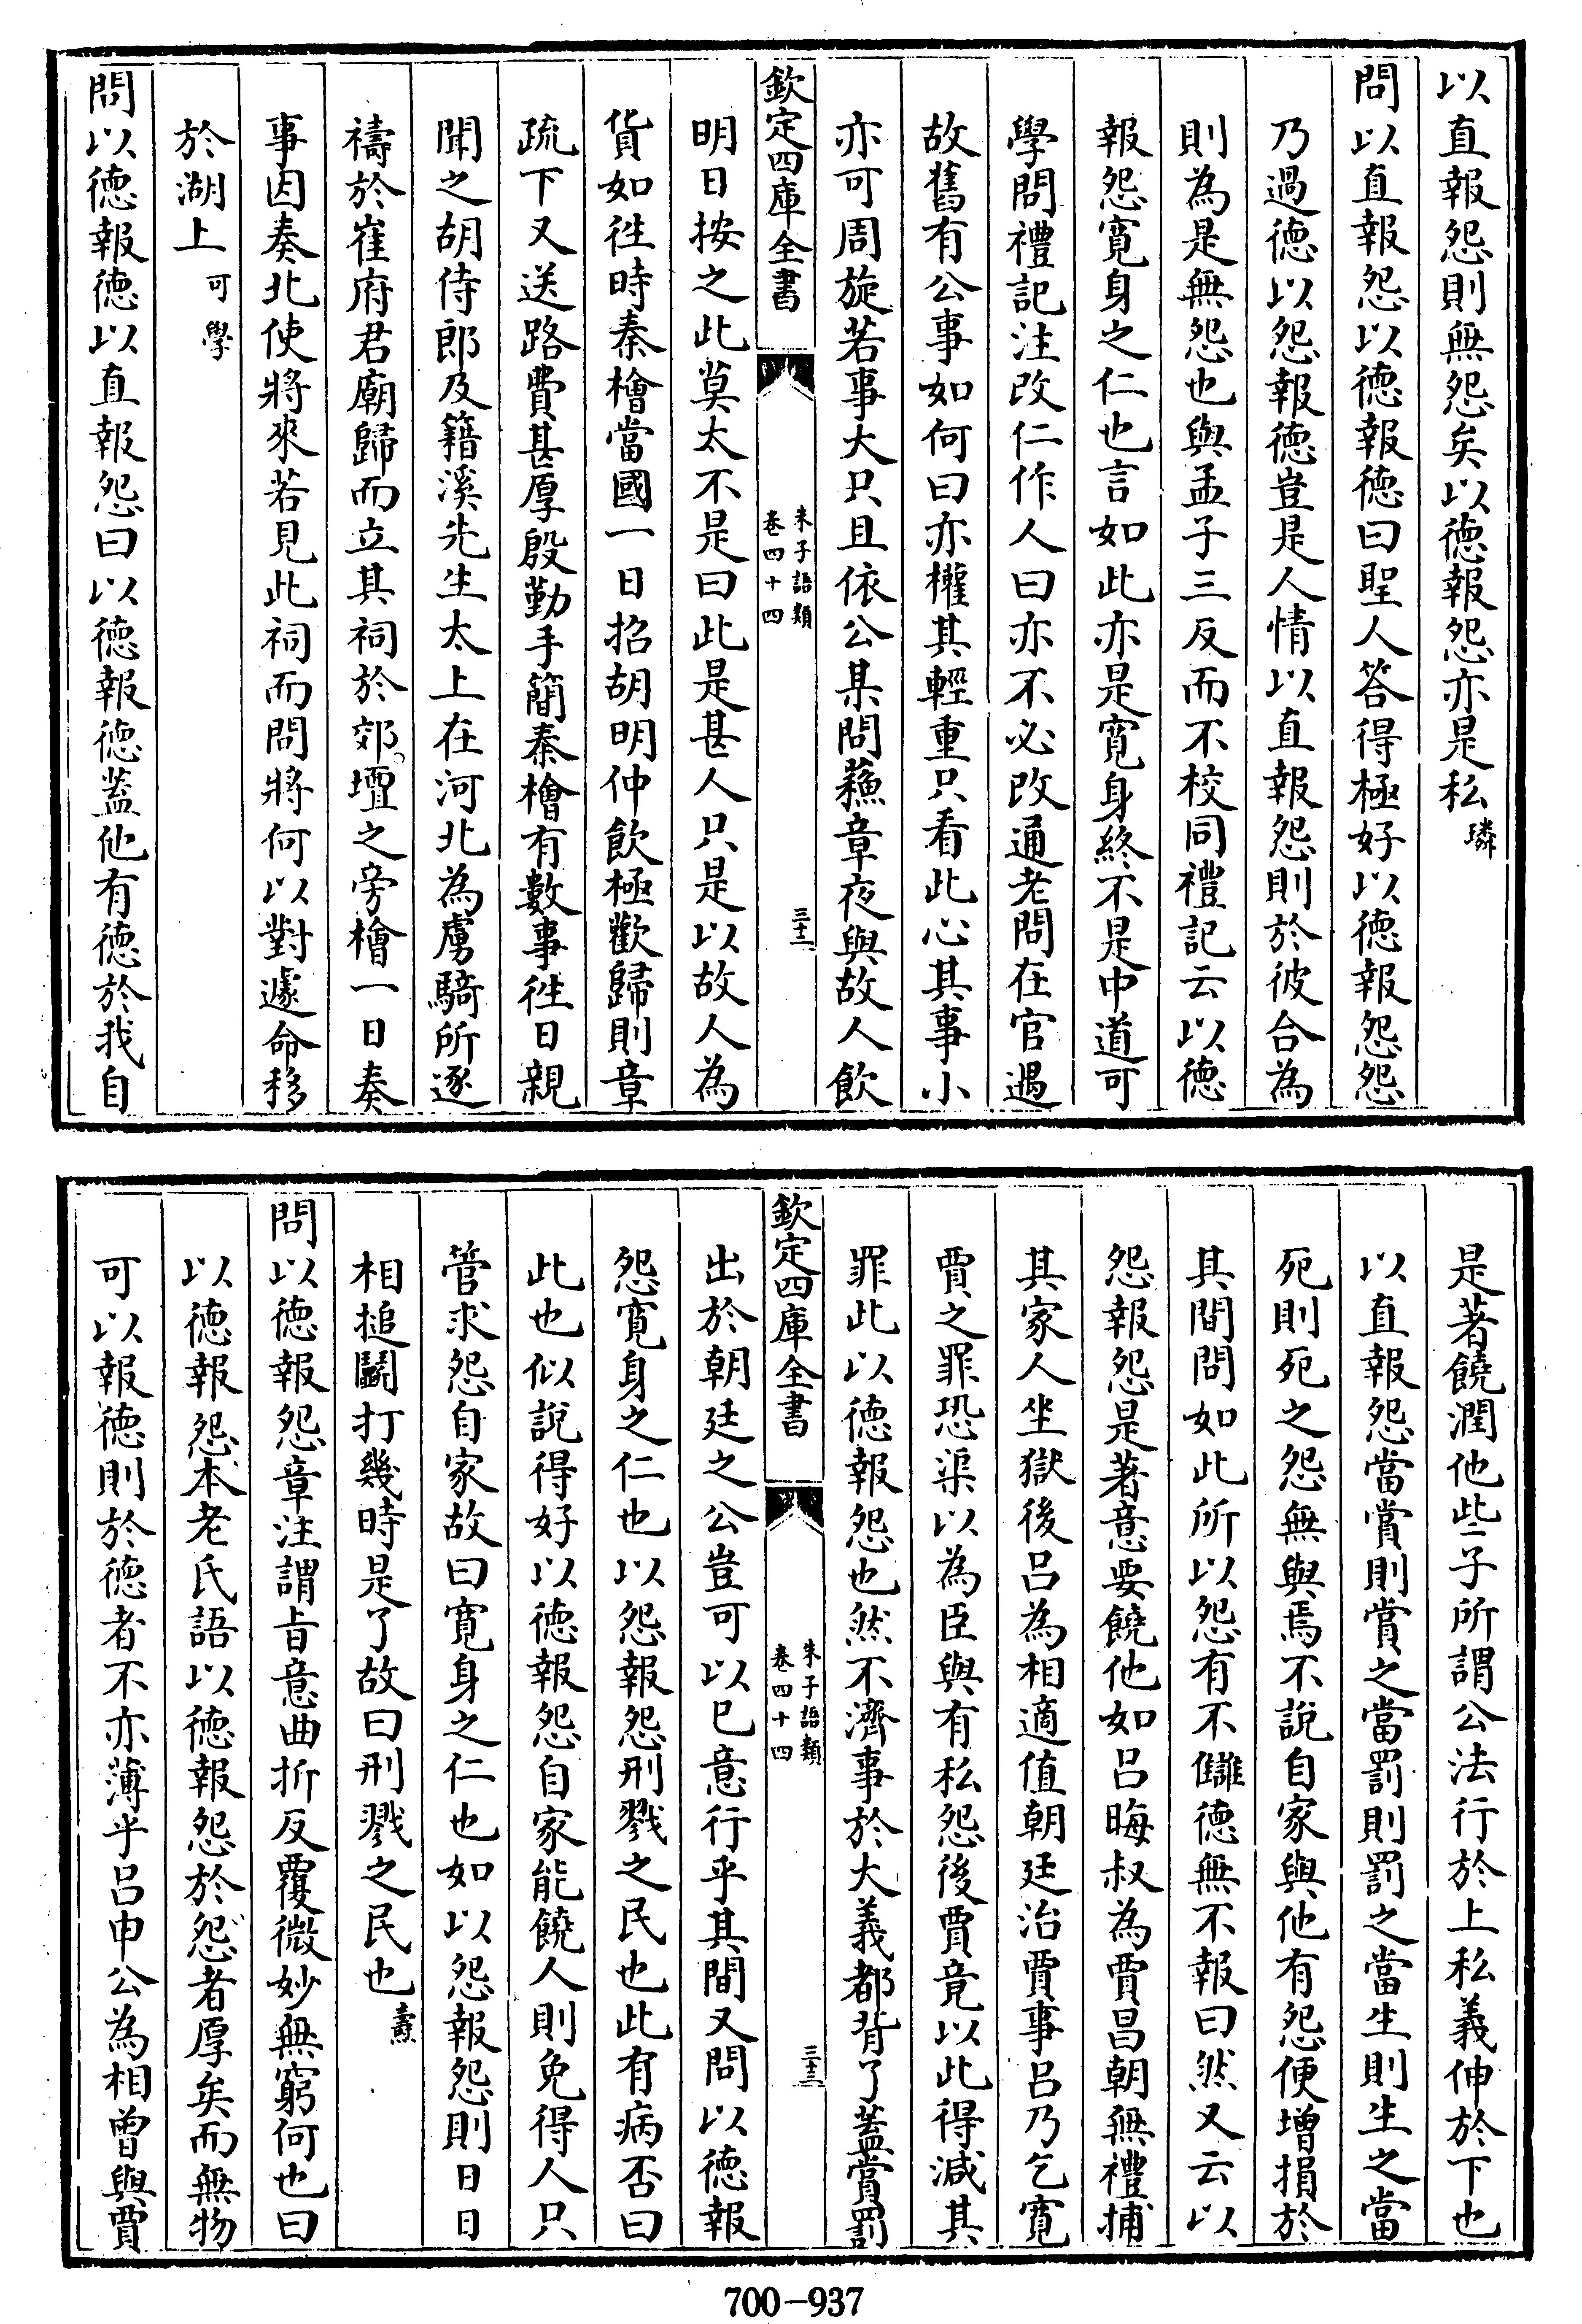 以直報怨則無怨矣以德報怨亦是私璘
問以直報怨以德報德曰聖人答得極好以德報怨怨
乃過德以怨報德豈是人情以直報怨則於彼合為
則為是無怨也與孟子三反而不校同禮記云以德
報怨寛身之仁也言如此亦是寛身終不是中道可
學問禮記注改仁作人曰亦不必改通老問在官遇
故舊有公事如何曰亦權其輕重只看此心其事小
亦可周旋若事大只且依公某問蘓章夜與故人飲
欽定四庫全書
朱子語類
卷四十四
三十二
明日按之此莫太不是曰此是甚人只是以故人為
貨如徃時秦檜當國一日招胡明仲飲極歡歸則章
疏下又送路費甚厚殷勤手簡秦檜有數事徃日親
聞之胡侍郎及籍溪先生太上在河北為虜騎所逐
禱於崔府君廟歸而立其祠於郊壇之旁檜一日奏
事因奏北使將來若見此祠而問將何以對遽命移
於湖上可學
問以德報德以直報怨曰以德報德蓋他有德於我自
是著饒潤他些子所謂公法行於上私義伸於下也
以直報怨當賞則賞之當罰則罰之當生則生之當
死則死之怨無與焉不說自家與他有怨便增損於
其間問如此所以怨有不讎德無不報曰然又云以
怨報怨是著意要饒他如吕晦叔為賈昌朝無禮捕
其家人坐獄後吕為相適值朝廷治賈事吕乃乞寛
賈之罪恐渠以為臣與有私怨後賈竟以此得減其
罪此以德報怨也然不濟事於大義都背了蓋賞罰
欽定四庫全書
朱子語類
卷四十四
三十三
出於朝廷之公豈可以已意行乎其間又問以德報
怨寛身之仁也以怨報怨刑戮之民也此有病否曰
此也似說得好以德報怨自家能饒人則免得人只
管求怨自家故曰寛身之仁也如以怨報怨則日日
相搥鬭打幾時是了故曰刑戮之民也燾
問以德報怨章注謂㫖意曲折反覆微妙無窮何也曰
以德報怨本老氏語以德報怨於怨者厚矣而無物
可以報德則於德者不亦薄乎吕申公為相曽與賈
700-937